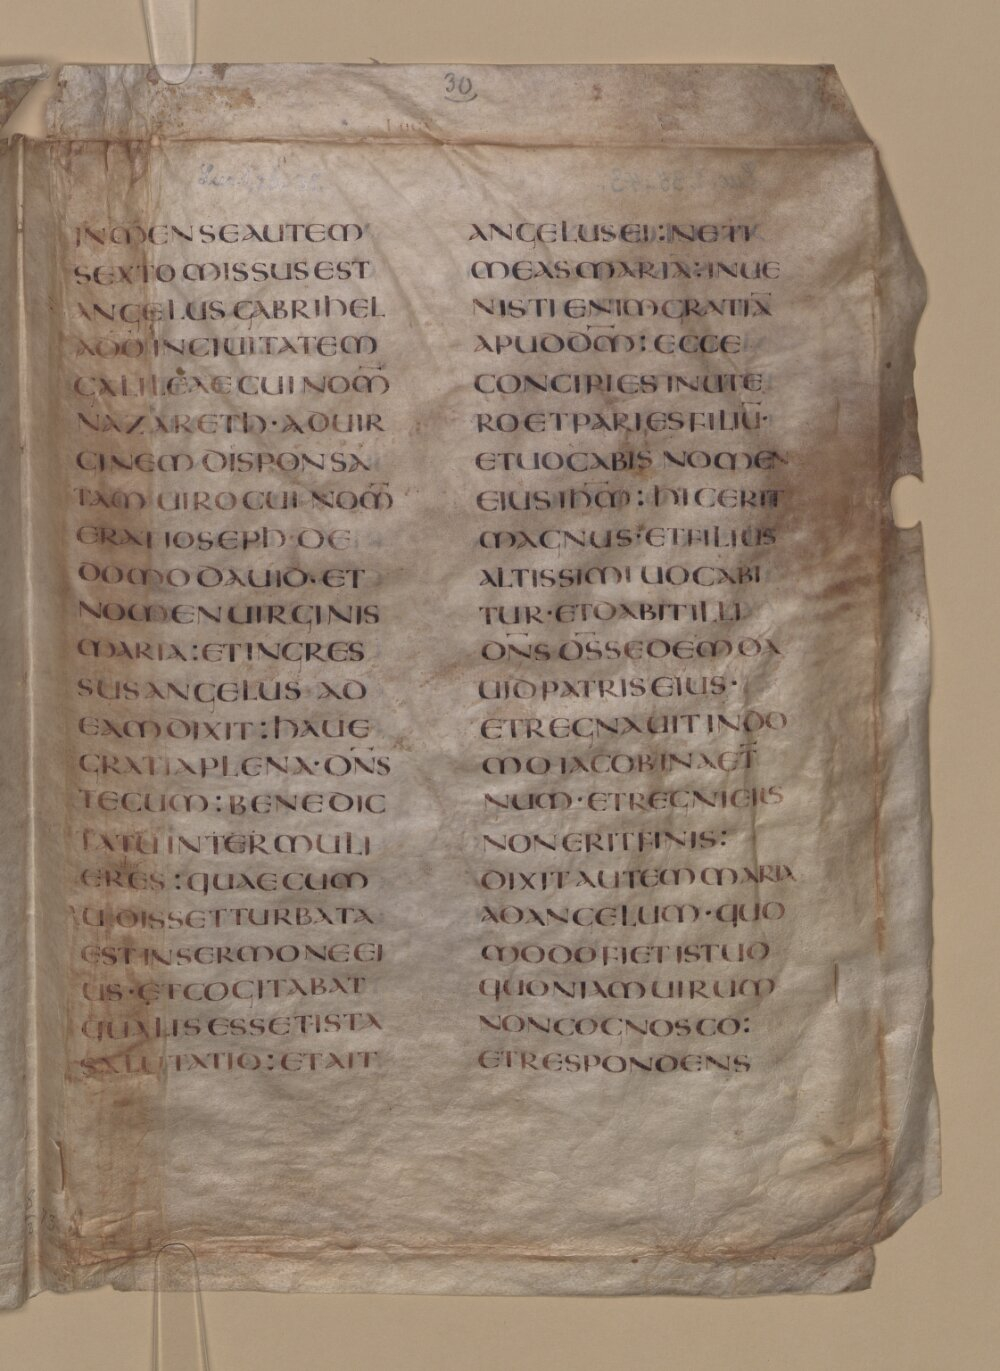 30
INMENSEAUTEM
SEXTO MISSUS EST
ANGELUS GABRIHEL
ADD̄ INCIUITATEM
GALILEAE CUI NOM̄
NAZARETH· ADUIR
GINEM DISPONSA
TAM UIRO CUI NOM̄
ERAT IOSEPH· DE
DOMO DAUID· ET
NOMEN UIRGINIS
MARIA: ETINGRES
SUS ANGELUS AD
EAM DIXIT: HAUE
GRATIA PLENA· DN̄S
TECUM: BENEDIC
TATU INTER MULI
ERES: QUAE CUM
UIDISSET TURBATA
EST IN SERMONE EI
US· ET COGITABAT
QUALIS ESSET ISTA
SALUTATIO: ET AIT
ANGELUS EI: NETI
MEAS MARIA: INUE
NISTI ENIM GRATIĀ
APUD DM̄: ECCE
CONCIPIES IN UTE
RO ET PARIES FILIŪ·
ET UOCABIS NOMEN
EIUS IHM̄: HIC ERIT
MAGNUS· ET FILIUS
ALTISSIMI UOCABI
TUR· ET DABIT ILLI
DN̄S DS̄ SEDEM DA
UID PATRIS EIUS·
ET REGNAUIT IN DO
MO IACOB IN AET̄
NUM· ET REGNI EIUS
NON ERIT FINIS:
DIXIT AUTEM MARIA
AD ANGELUM· QUO
MODO FIET ISTUD
QUONIAM UIRUM
NON COGNOSCO:
ET RESPONDENS